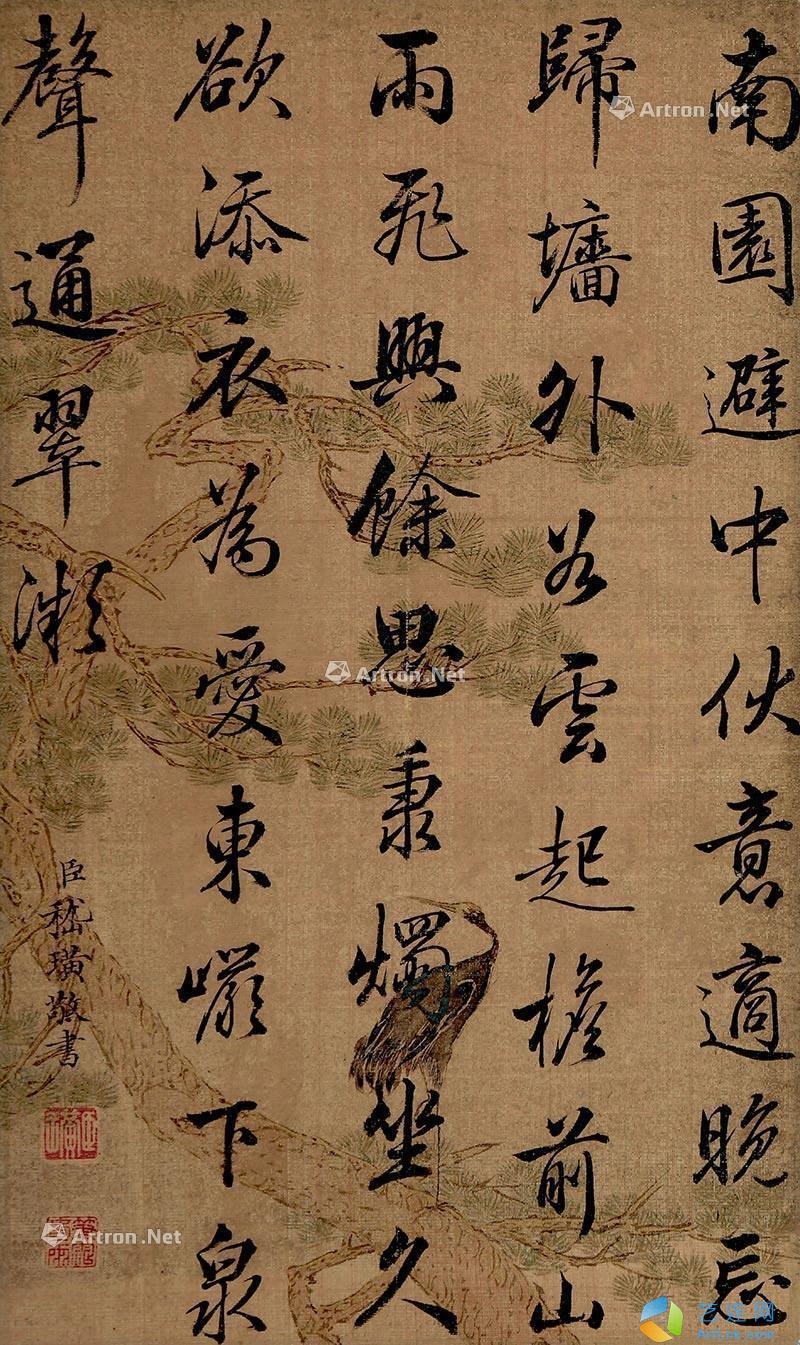 南園避中伏意適晚忘
歸墻外谷雲起檐前山
雨飛興餘思秉燭坐久
欲添衣為愛東巖下泉
聲通翠微
臣嵇璜敬書
Artron.Net
Artron.Net
Artron.Net